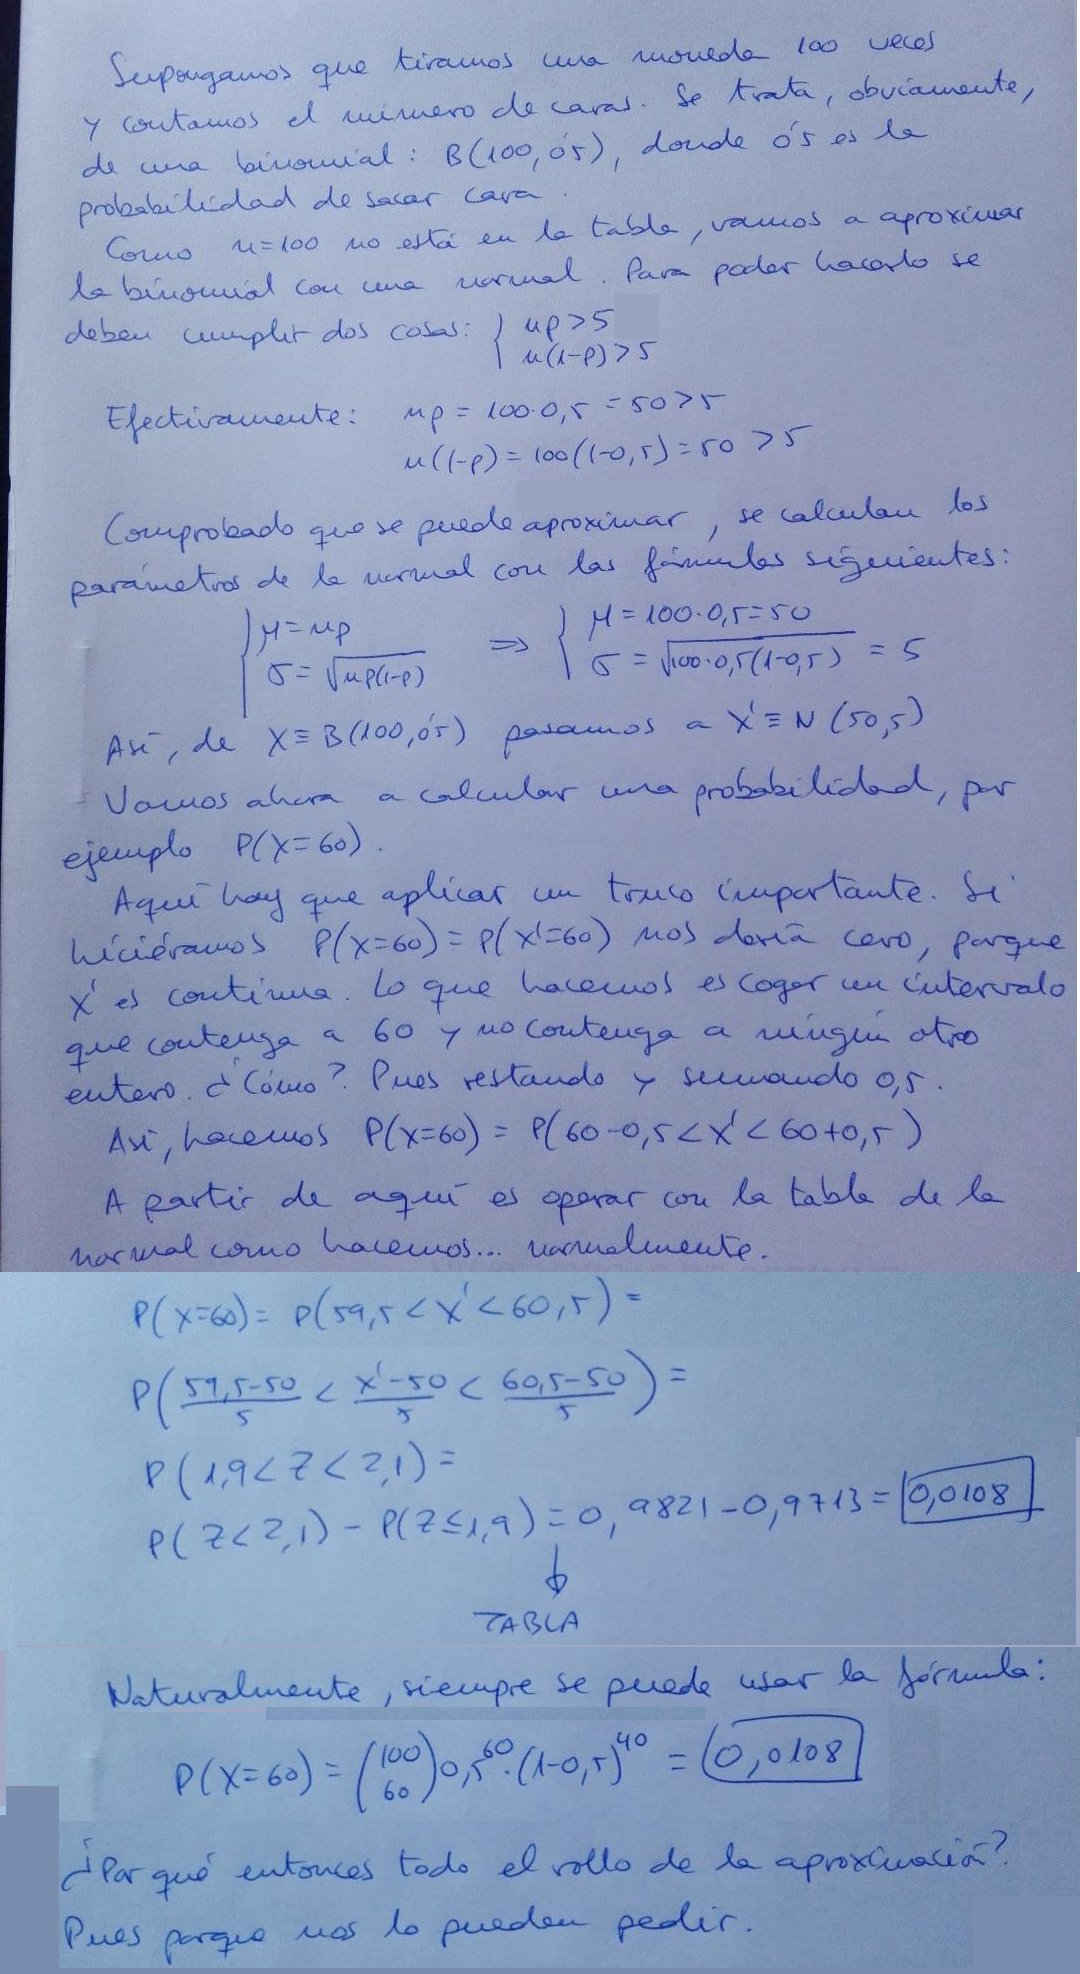 Supongamos que tiramos una moneda 100 veces
y contamos el número de caras. Se trata, obviamente,
de una binomial: B(100, 0'5), donde 0'5 es la
probabilidad de sacar cara.
Como n=100 no está en la tabla, vamos a aproximar
la binomial con una normal. Para poder hacerlo se
deben cumplir dos cosas: { np>5
n(1-p)>5
Efectivamente: np = 100·0,5 = 50>5
n(1-p) = 100(1-0,5) = 50 >5
Comprobado que se puede aproximar, se calculan los
parámetros de la normal con las fórmulas siguientes:
{ μ = np ⇒ { μ = 100·0,5=50
σ = √np(1-p) σ = √100·0,5(1-0,5) = 5
Así, de X≡B(100,0'5) pasamos a X'≡N(50,5)
Vamos ahora a calcular una probabilidad, por
ejemplo P(X=60).
Aquí hay que aplicar un truco importante. Si
hiciéramos P(X=60) = P(X'=60) nos daría cero, porque
X' es continua. Lo que hacemos es coger un intervalo
que contenga a 60 y no contenga a ningún otro
entero. ¿Cómo? Pues restando y sumando 0,5.
Así, hacemos P(X=60) = P(60-0,5<X'<60+0,5)
A partir de aquí es operar con la tabla de la
normal como hacemos... normalmente.
P(X=60) = P(59,5<X'<60,5) =
P(59,5-50/5 < X'-50/5 < 60,5-50/5) =
P(1,9<Z<2,1) =
P(Z<2,1) - P(Z≤1,9) = 0,9821-0,9713 = 0,0108
↓
TABLA
Naturalmente, siempre se puede usar la fórmula:
P(X=60) = (100 60) 0,5^60·(1-0,5)^40 = 0,0108
¿Por qué entonces todo el rollo de la aproximación?
Pues porque nos lo pueden pedir.